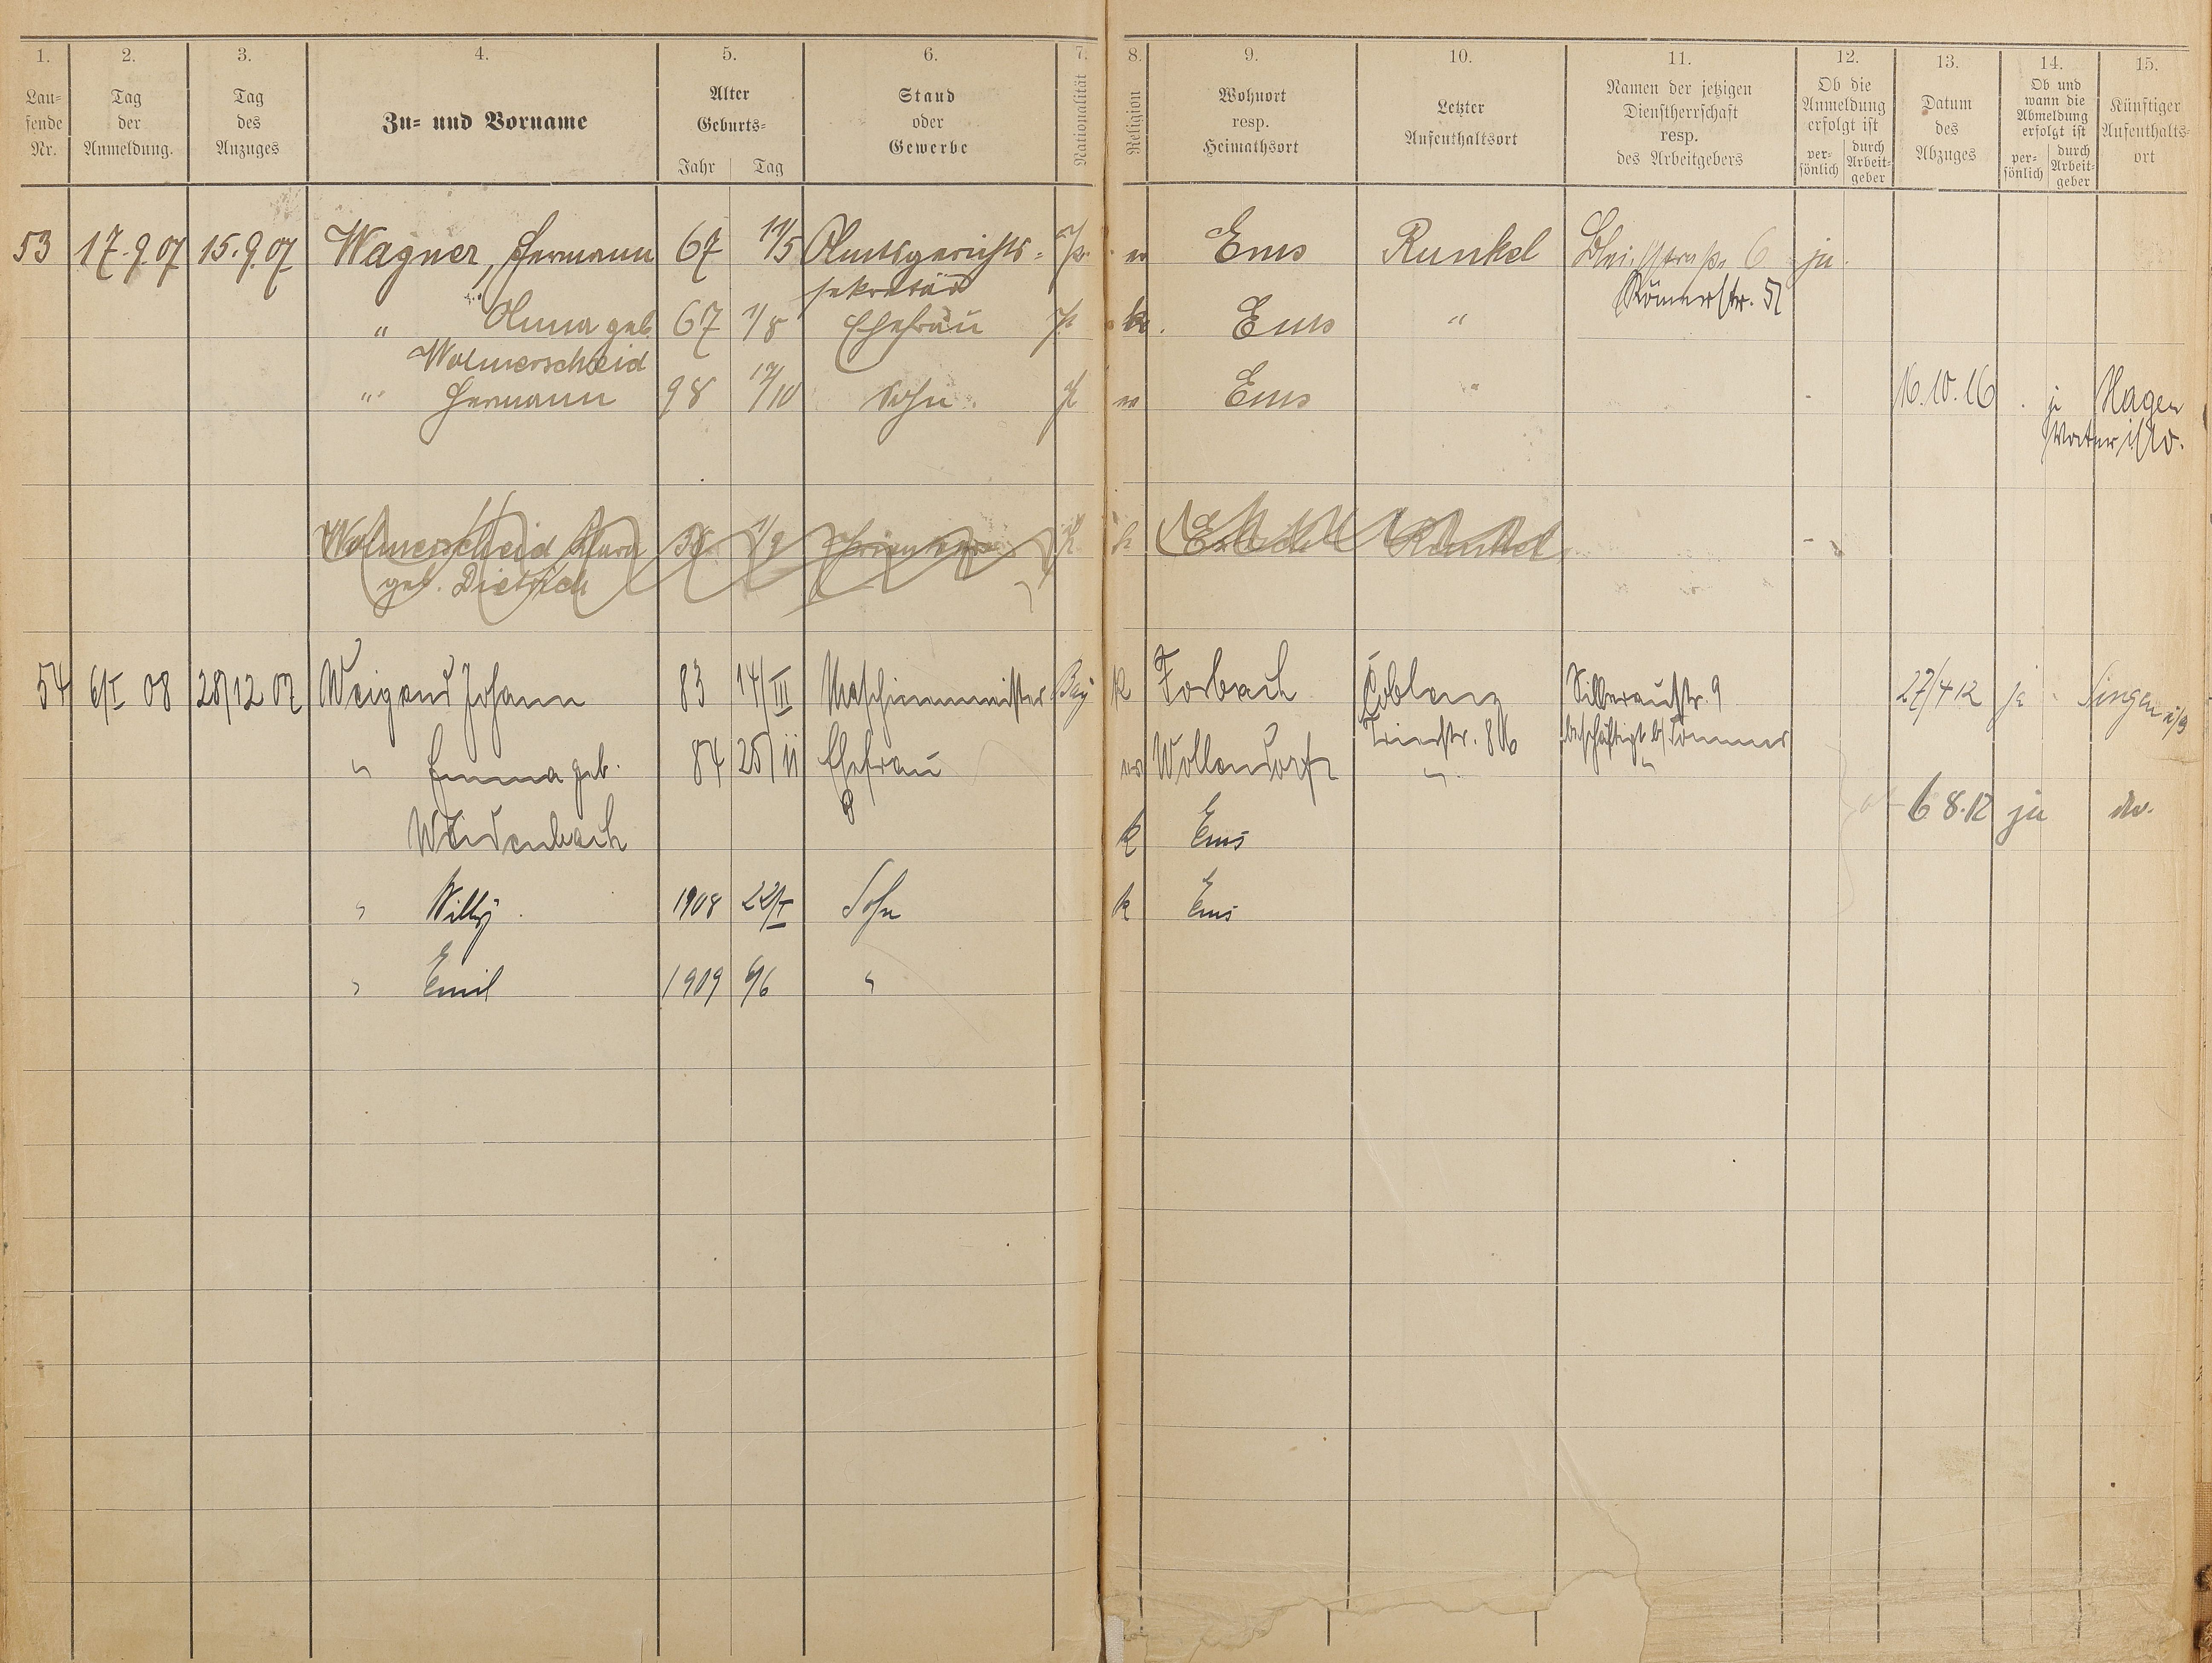 1. 2. 3. 4. 5. 6. 7. 8. 9. 10. 11. 12. 13. 14. 15.
Lau-
fende
Nr.
Tag
der
Anmeldung.
Tag
des
Anzuges
Zu- und Vorname
Alter
Geburts-
Jahr Tag
Stand
oder
Gewerbe
Nationalität
Religion
Wohnort
resp.
Heimathsort
Letzter
Aufenthaltsort
Namen der jetzigen
Dienstherrschaft
resp.
des Arbeitgebers
Ob die
Anmeldung
erfolgt ist
per-
sönlich
durch
Arbeit-
geber
Datum
des
Abzuges
Ob und
wann die
Abmeldung
erfolgt ist
per-
sönlich
durch
Arbeit-
geber
Künftiger
Aufenthalts-
ort
53 17.9.07 15.9.07 Wagner, Hermann 67 11/5 Amtsgerichts- Ems Runkel 6 ja.
sekretär Römerstr. 51
" Anna geb. 67 1/8 Ehefrau Ems "
Wolmerscheid
" Hermann 98 Sohn. Ems " 16.10.16 Hagen
Vater i/W.
Wolmerscheid Runkel
geb. Dietrich
54 6/I 08 28/12 07 Weigand Johann 83 14/III Maschinenmeister Bay k Forbach Coblenz Silberaustr. 9 27/4 12 ja Singen
Trierstr. beschäftigt b/ Sommer
" Emma geb. 84 25/11 Ehefrau Wollendorf "
Weidenbach k Ems 6 8.12 ja
" Willy 1908 22/I Sohn k Ems
" Emil 1909 6/6 "